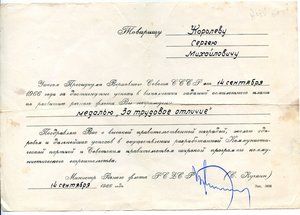 Товарищу Королеву
Сергею
Михайловичу
Указом Президиума Верховного Совета СССР от 14 сентября
1966 года за достигнутые успехи в выполнении заданий семилетнего плана
по развитию речного флота Вы награждены
медалью „За трудовое отличие"
Поздравляю Вас с высокой правительственной наградой, желаю
здоровья и дальнейших успехов в осуществлении разработанной Коммунисти-
ческой партией и Советским правительством широкой программы ком-
мунистического строительства.
Министр Речного флота РСФСР (С. Кучкин)
14 сентября 1966 года.